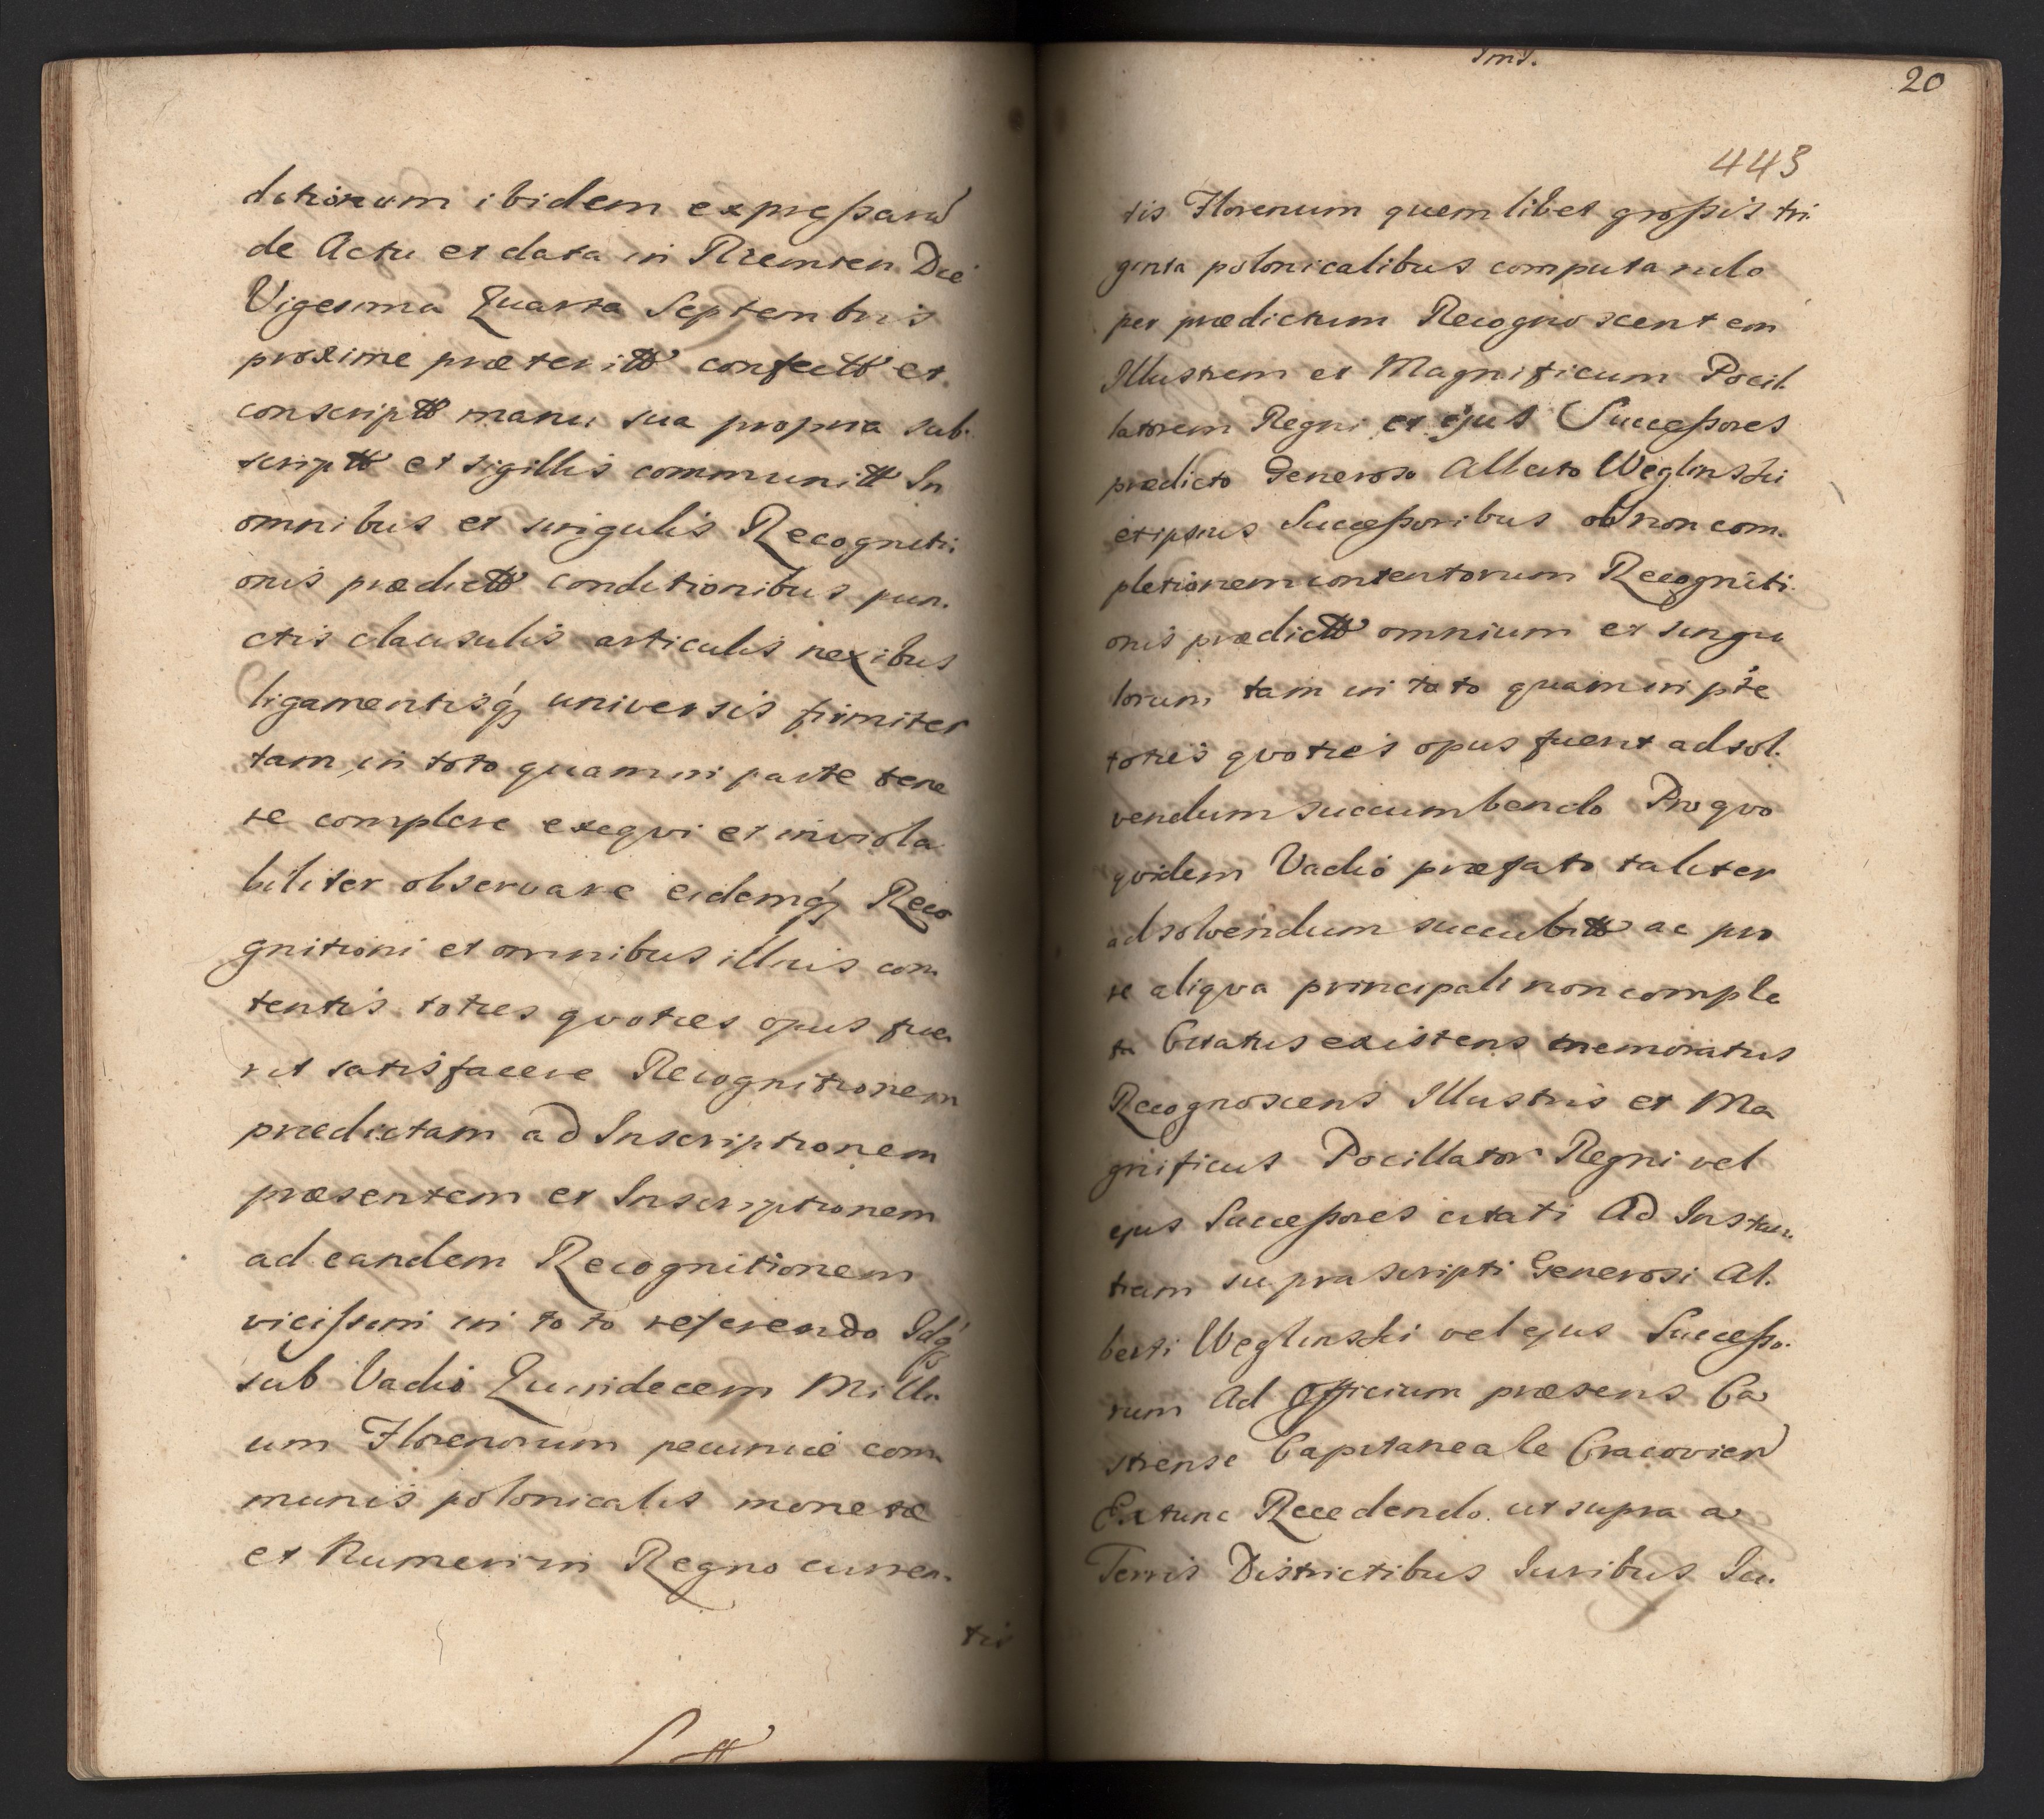 ditionum ibidem expressarum
de Actu et data in Rzemien Die
Vigesima Quarta Septembris
proxime præteritt confectt et
conscriptt manu sua propria sub-
scriptt et sigillis communitt In
omnibus et singulis Recogniti-
onis prædictt conditionibus pun-
ctis clausulis articulis nexibus
ligamentisq; universis firmiter
tam in toto quam in parte tene
re complere exeqvi et inviola
biliter observare eidemq; Reco
gnitioni et omnibus illius con-
tentis toties qvoties opus fue
rit satisfacere Recognitionem
prædictam ad Inscriptionem
præsentem et Inscriptionem
ad eandem Recognitionem
vicissim in toto referendo Idq;
sub Vadio Quindecem Milli-
um Florenorum pecuniæ com-
munis polonicalis monetæ
et Numeri in Regno curren-
tis
20
443
tis Florenum quemlibet grossis tri-
ginta polonicalibus computando
per prædictum Recognoscentem
Illustrem et Magnificum Pocil-
latorem Regni et ejus Successores
prædicto Generoso Alberto Weglinski
et ipsius Successoribus ob non com-
pletionem contentorum Recogniti-
onis prædictt omnium et singu
lorum tam in toto quam in pte
toties qvoties opus fuerit ad sol-
vendum succumbendo Pro qvo
qvidem Vadio præfato taliter
ad solvendum succubitt ac pro
re aliqva principali non comple
ta Citatus existens memoratus
Recognoscens Illustris et Ma
gnificus Pocillator Regni vel
ejus Successores citati Ad Instan-
tiam suprascripti Generosi Al-
berti Weglinski vel ejus Successo-
rum Ad Officium præsens Ca
strense Capitaneale Cracovien
Extunc Recedendo ut supra a
Terris Districtibus Iuribus Iu-